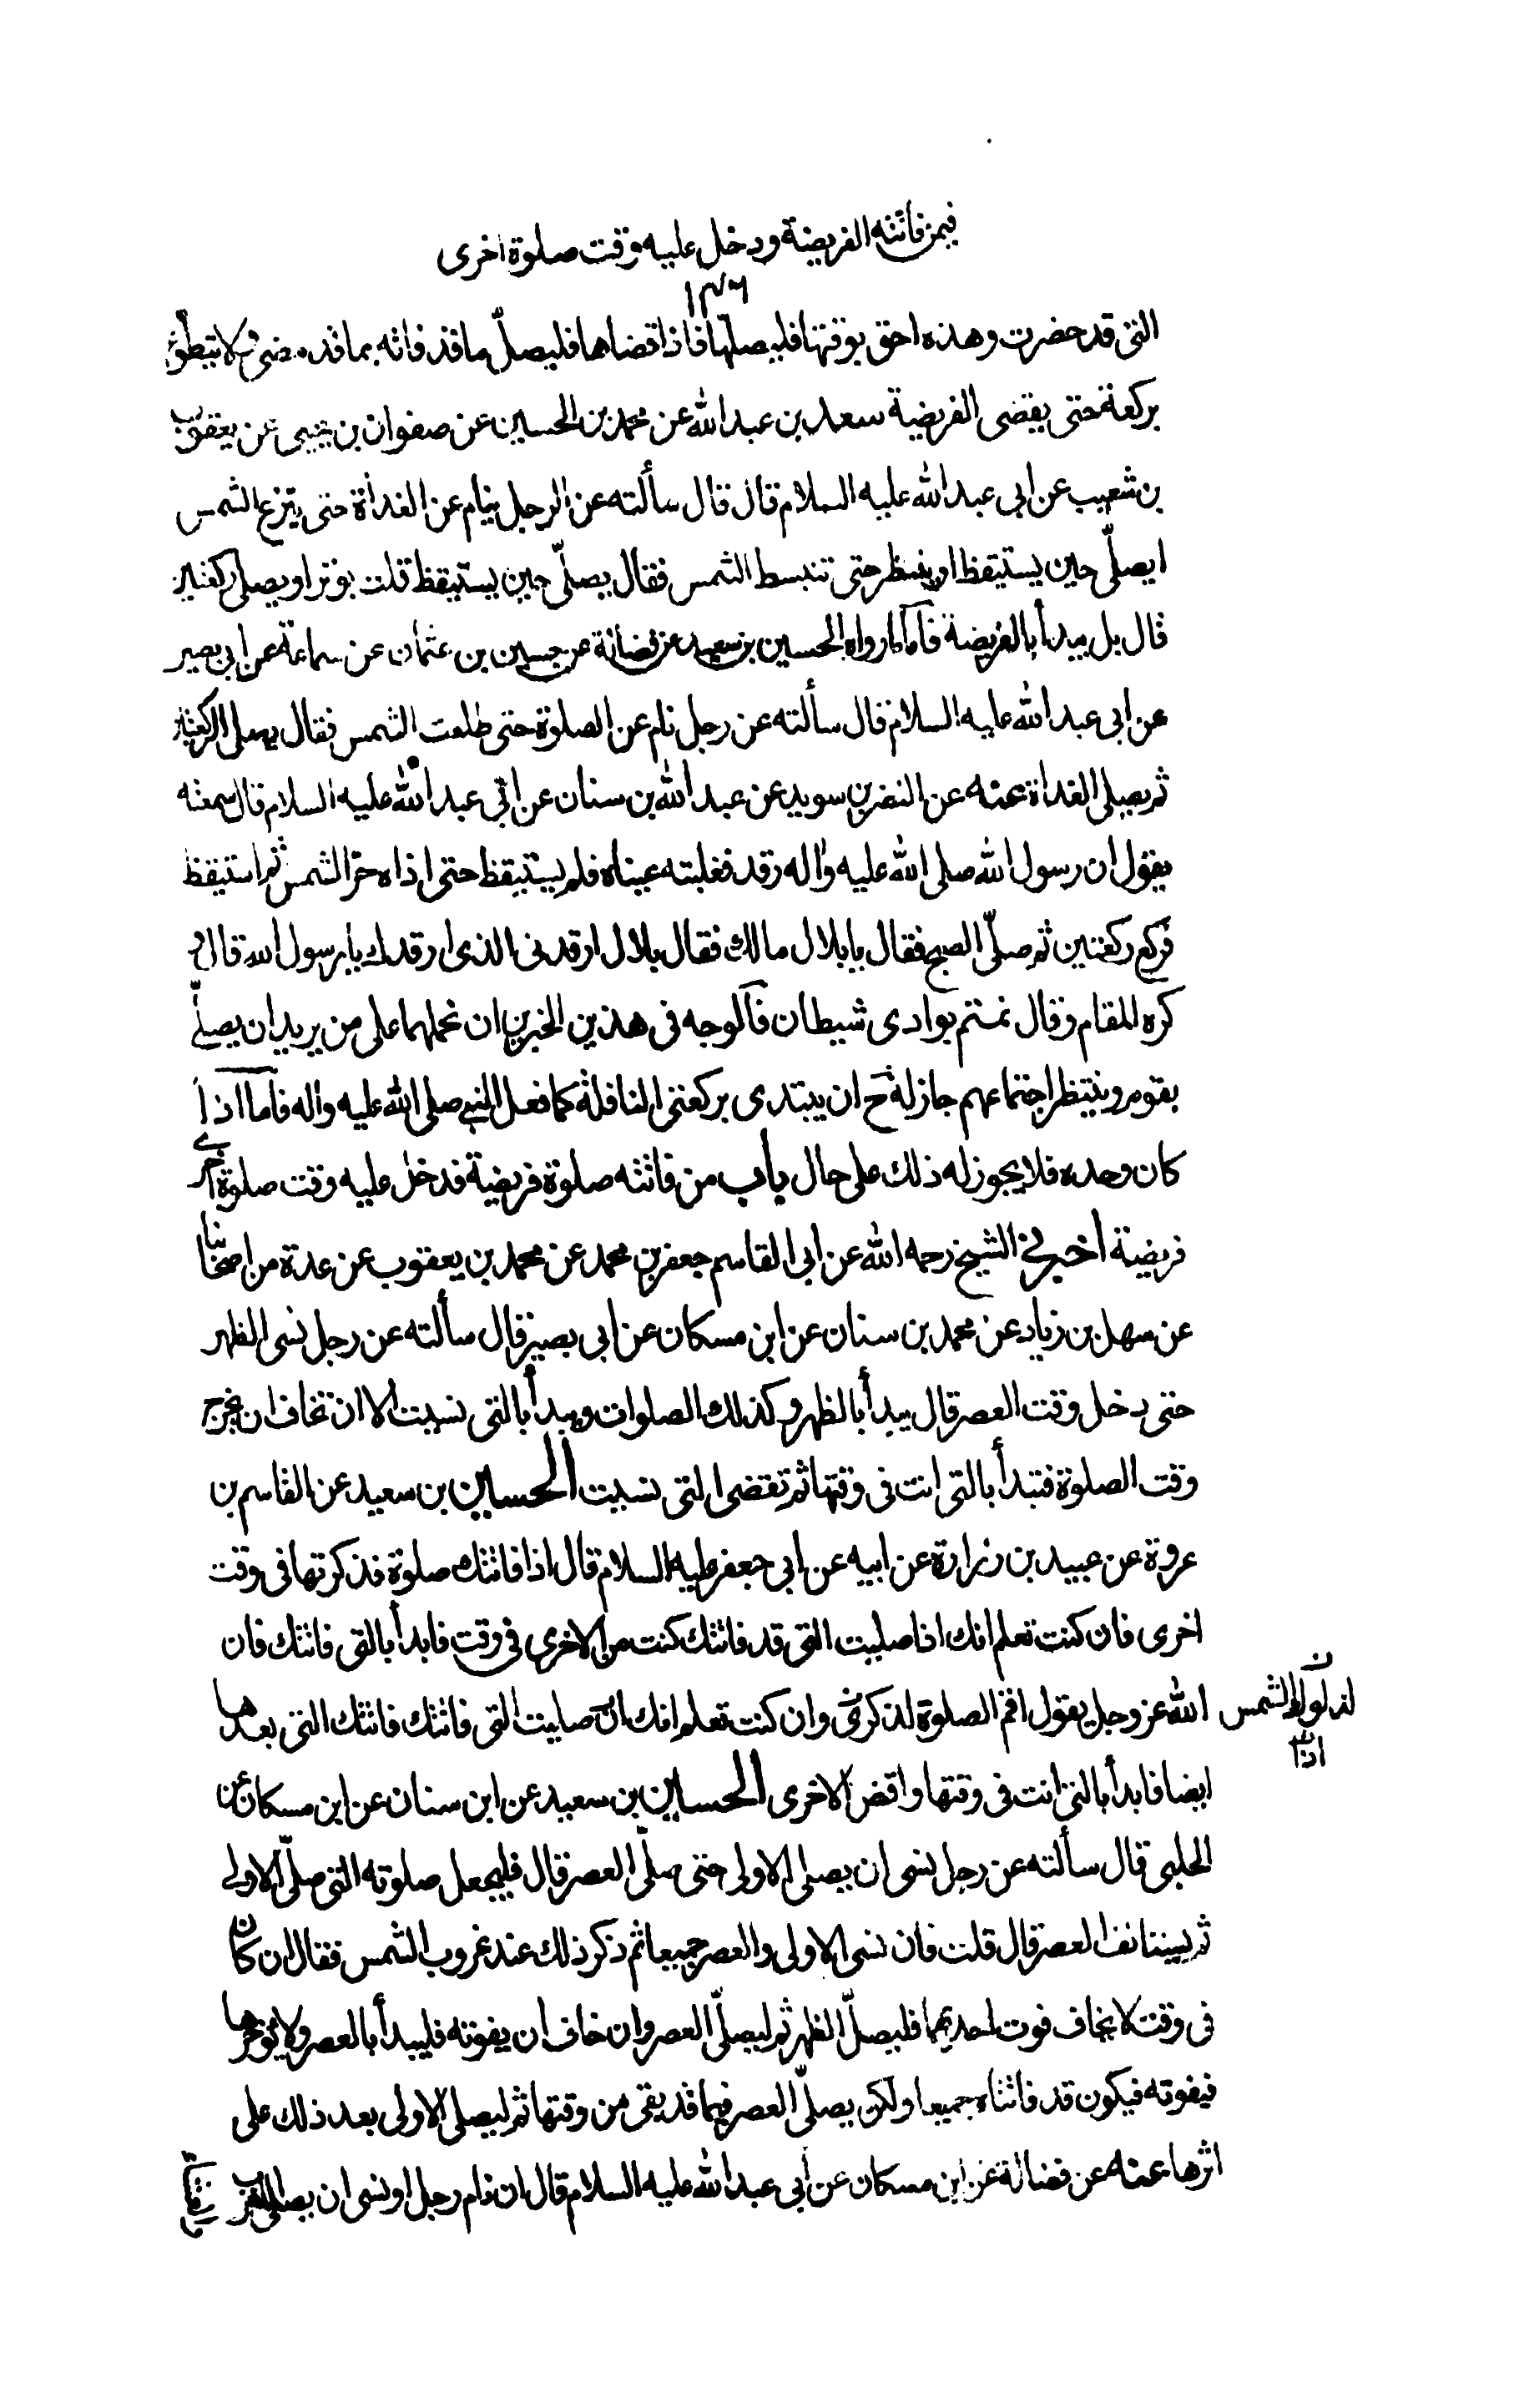 فيمن فاتته الفريضة ودخل عليه وقت صلوة اخرى
١٤٦
التى قد حضرت وهذه احق بوقتها فليصلها فاذا قضاها فليصلّ ما قد فاته بما قد مضى ولا يتطوع
بركعة حتى يقضى الفريضة سعد بن عبد الله عن محمد بن الحسين عن صفوان بن يحيى عن يعقوب
بن شعيب عن ابى عبد الله عليه السلام قال قال سألته عن الرجل ينام عن الغداة حتى يبزغ الشمس
ايصلّى حين يستيقظ او ينتظر حتى تنبسط الشمس فقال يصلّى حين يستيقظ قلت يوتر او يصلى ركعتين
قال بل يبدأ بالفريضة فاما ما رواه الحسين بن سعيد عن فضالة عن حسين بن عثمان عن سماعة عن ابى بصير
عن ابى عبد الله عليه السلام قال سألته عن رجل نام عن الصلوة حتى طلعت الشمس فقال يصلى الركعتين
ثم يصلى الغداة عنه عن النضر بن سويد عن عبد الله بن سنان عن ابى عبد الله عليه السلام قال سمعته
يقول ان رسول الله صلى الله عليه واله رقد فغلبته عيناه فلم يستيقظ حتى اذاه حرّ الشمس ثم استيقظ
فركع ركعتين ثم صلّى الصبح فقال يا بلال مالك فقال بلال ارقدنى الذى ارقدك يا رسول الله قال و
كره المقام وقال نمتم بوادى شيطان فالوجه فى هذين الخبرين ان نحملهما على من يريد ان يصلّى
بقوم وينتظر اجتماعهم جاز له ح ان يبتدى بركعتى النافلة كما فعل النبى صلى الله عليه واله فاما اذا
كان وحده فلا يجوز له ذلك على حال باب من فاتته صلوة فريضة فدخل عليه وقت صلوة اخرى
فريضة اخبرنى الشيخ رحمه الله عن ابى القاسم جعفر بن محمد عن محمد بن يعقوب عن عدة من اصحابنا
عن سهل بن زياد عن محمد بن سنان عن ابن مسكان عن ابى بصير قال سألته عن رجل نسى الظهر
حتى دخل وقت العصر قال يبدأ بالظهر وكذلك الصلوات ويبدأ بالتى نسيت الا ان تخاف ان يخرج
وقت الصلوة فتبدأ بالتى انت فى وقتها ثم تقضى التى نسيت الحسين بن سعيد عن القاسم بن
عروة عن عبيد بن زرارة عن ابيه عن ابى جعفر عليه السلام قال اذا فاتتك صلوة فذكرتها فى وقت
اخرى فان كنت تعلم انك اذا صليت التى قد فاتتك كنت من الاخرى فى وقت فابدأ بالتى فاتتك فان
الله عز وجل يقول اقم الصلوة لذكرى وان كنت تعلم انك ان صليت التى فاتتك فاتتك التى بعدها
لدلوك الشمس ن
اذا
ايضا فابدأ بالتى انت فى وقتها واقض الاخرى الحسين بن سعيد عن ابن سنان عن ابن مسكان عن
الحلبى قال سألته عن رجل نسى ان يصلى الاولى حتى صلّى العصر قال فليجعل صلوته التى صلّى الاولى
ثم يستانف العصر قال قلت فان نسى الاولى والعصر جميعا ثم ذكر ذلك عند غروب الشمس فقال ان كان
فى وقت لا يخاف فوت احديهما فليصلّ الظهر ثم ليصلّ العصر وان خاف ان يفوته فليبدأ بالعصر ولا يؤخرها
فيفوته فيكون قد فاتتاه جميعا ولكن يصلّى العصر فيما قد بقى من وقتها ثم ليصلى الاولى بعد ذلك على
اثرها عنه عن فضالة عن ابن مسكان عن ابى عبد الله عليه السلام قال ان نام رجل او نسى ان يصلى المغرب